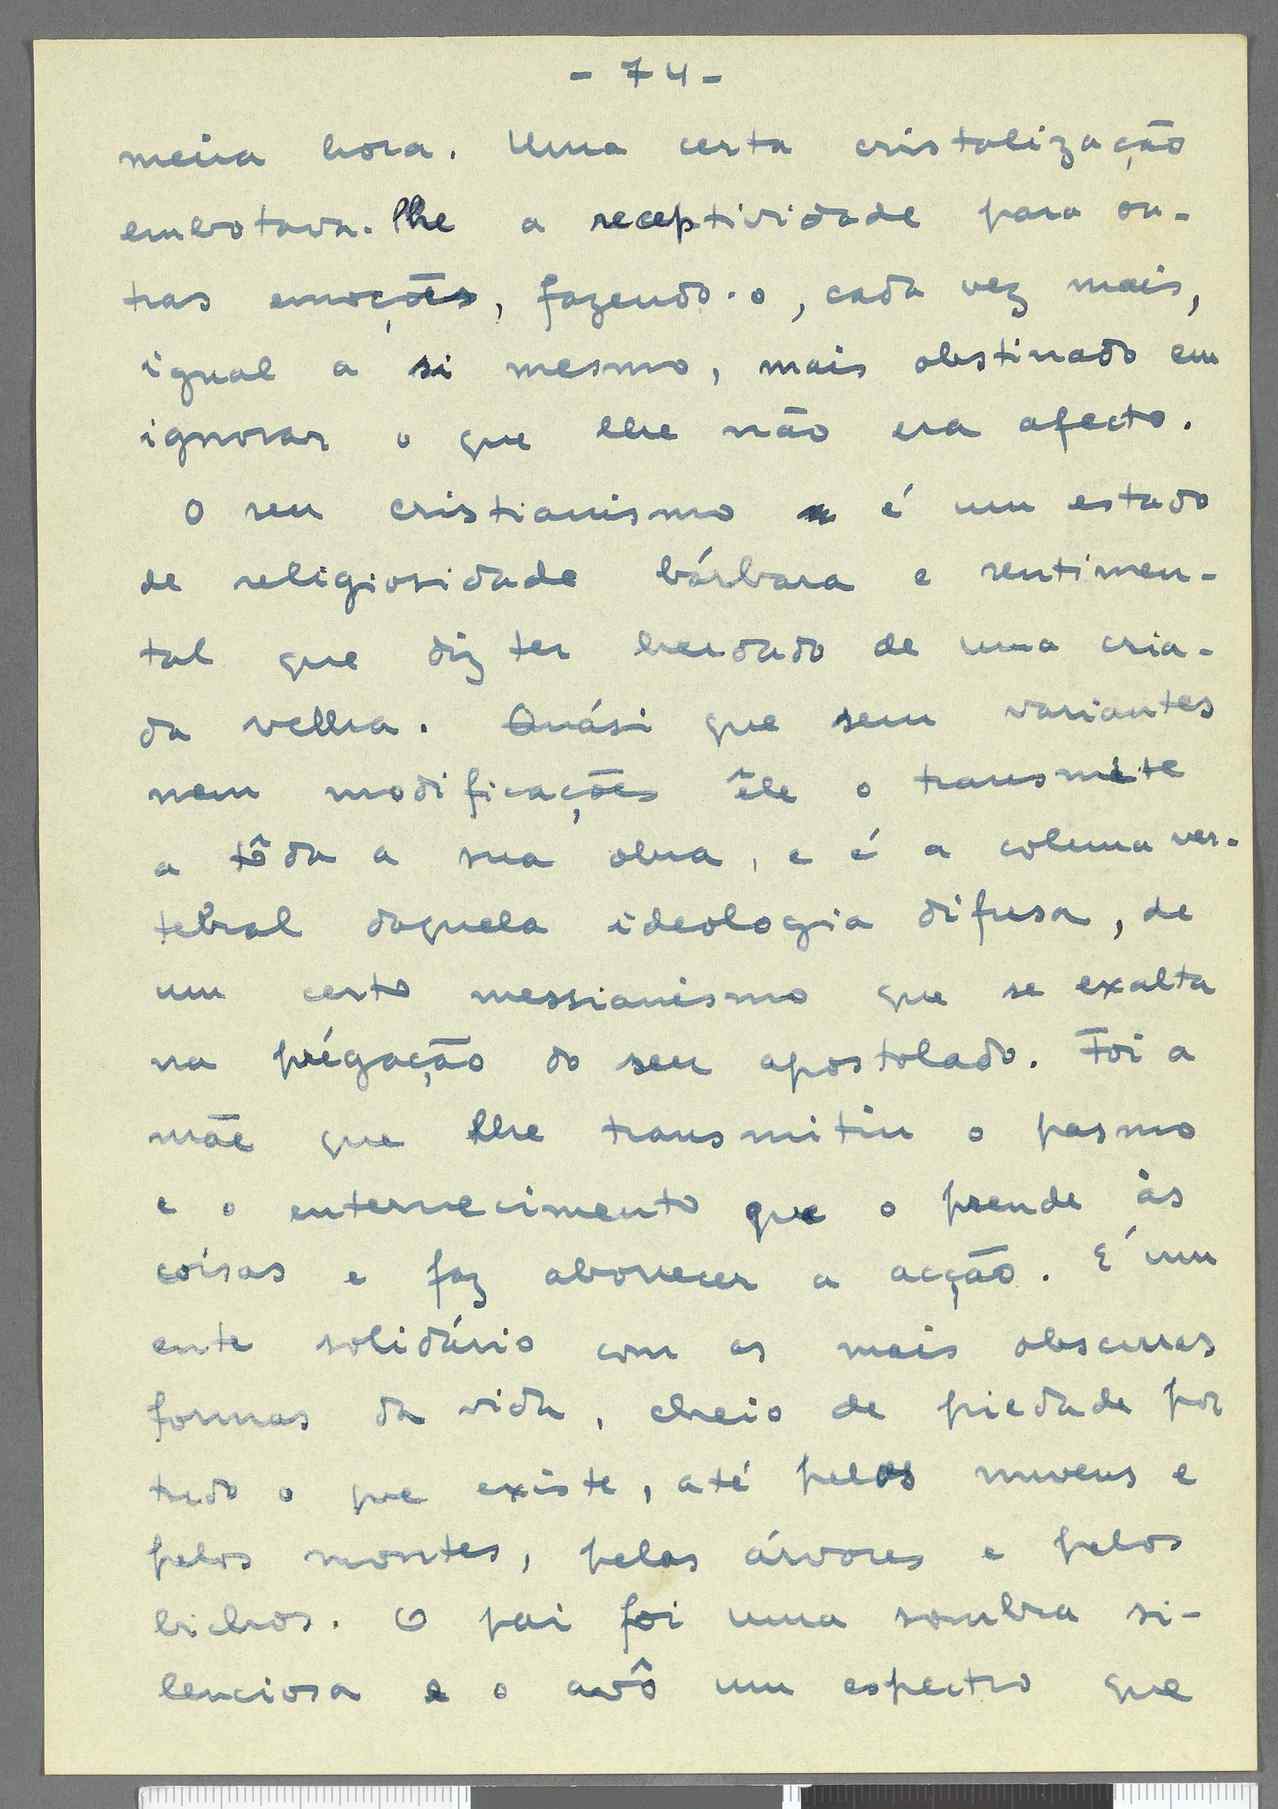 - 74 -
meira hora. Uma certa cristalização
embotava-lhe a receptividade para ou-
tras emoções, fazendo-o, cada vez mais,
igual a si mesmo, mais obstinado em
ignorar o que lhe não era afecto.
O seu cristianismo é um estado
de religiosidade bárbara e sentimen-
tal que diz ter herdado de uma cria-
da velha. Quási que sem variantes
nem modificações êle o transmite
a tôda a sua obra, e é a coluna ver-
tebral daquela ideologia difusa, de
um certo messianismo que se exalta
na prégação do seu apostolado. Foi a
mãe que lhe transmitiu o pasmo
e o enternecimento que o prende às
coisas e faz aborrecer a acção. É um
ente solidário com as mais obscuras
formas da vida, cheio de piedade por
tudo o que existe, até pelas nuvens e
pelos montes, pelas árvores e pelos
bichos. O pai foi uma sombra si-
lenciosa e o avô um espectro que